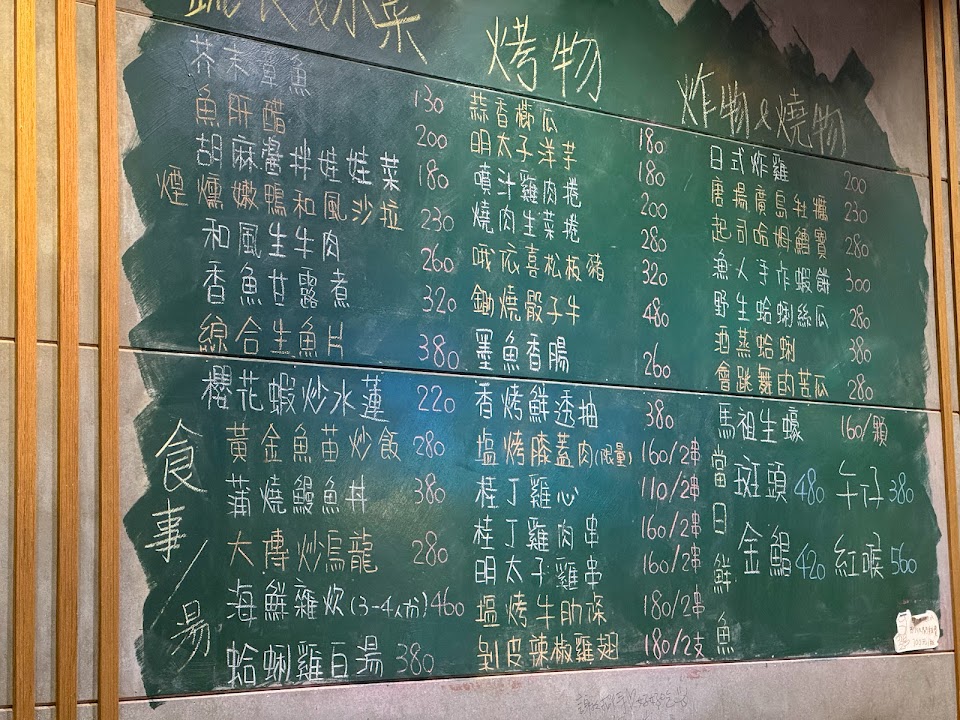 蔬食&冰菜
芥末章魚 130
魚肝醋 200
胡麻醬拌娃娃菜 180
煙燻嫩鴨和風沙拉 230
和風生牛肉 260
香魚甘露煮 320
綜合生魚片 380
櫻花蝦炒水蓮 220
食事/湯
黃金魚苗炒飯 280
蒲燒鰻魚丼 380
大傳炒烏龍 280
海鮮雜炊(3-4人份) 460
蛤蜊雞白湯 380
烤物
蒜香櫛瓜 180
明太子洋芋 180
噴汁雞肉捲 200
燒肉生菜捲 280
哦依喜松板豬 320
鋤燒骰子牛 480
墨魚香腸 260
香烤鮮透抽 380
塩烤膝蓋肉(限量) 160/2串
桂丁雞心 110/2串
桂丁雞肉串 160/2串
明太子雞串 160/2串
塩烤牛肋條 180/2串
剝皮辣椒雞翅 180/2支
炸物&燒物
日式炸雞 200
唐揚廣島牡蠣 230
起司哈姆鱈寶 280
漁人手作蝦餅 300
野生蛤蜊絲瓜 280
酒蒸蛤蜊 380
會跳舞的苦瓜 280
馬祖生蠔 160/顆
當日鮮魚
斑頭 480 午仔 380
金鯧 420 紅喉 560